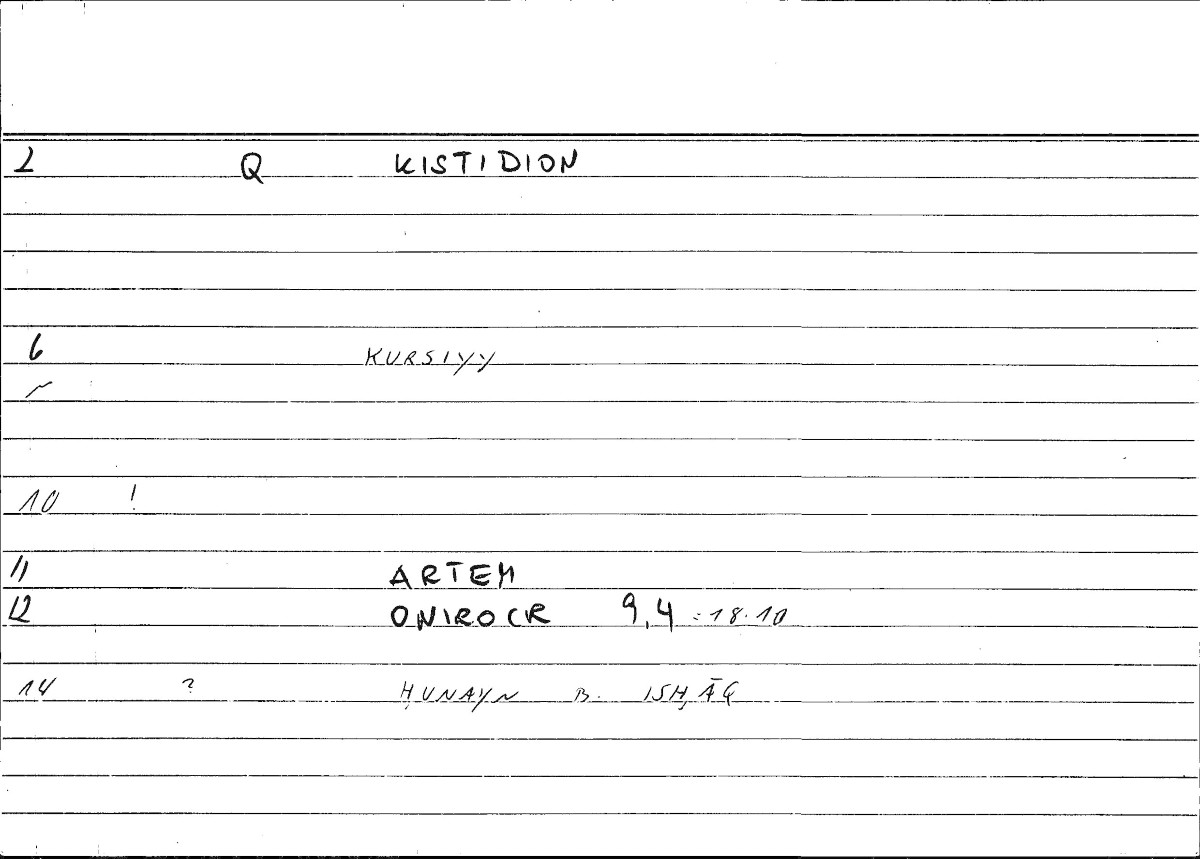 2 Q KISTIDION
6 KURSIYY
~
10 !
11 ARTEM
12 ONIROCR 9,4 = 18.10
14 ? ḤUNAYN B. ISḤĀQ